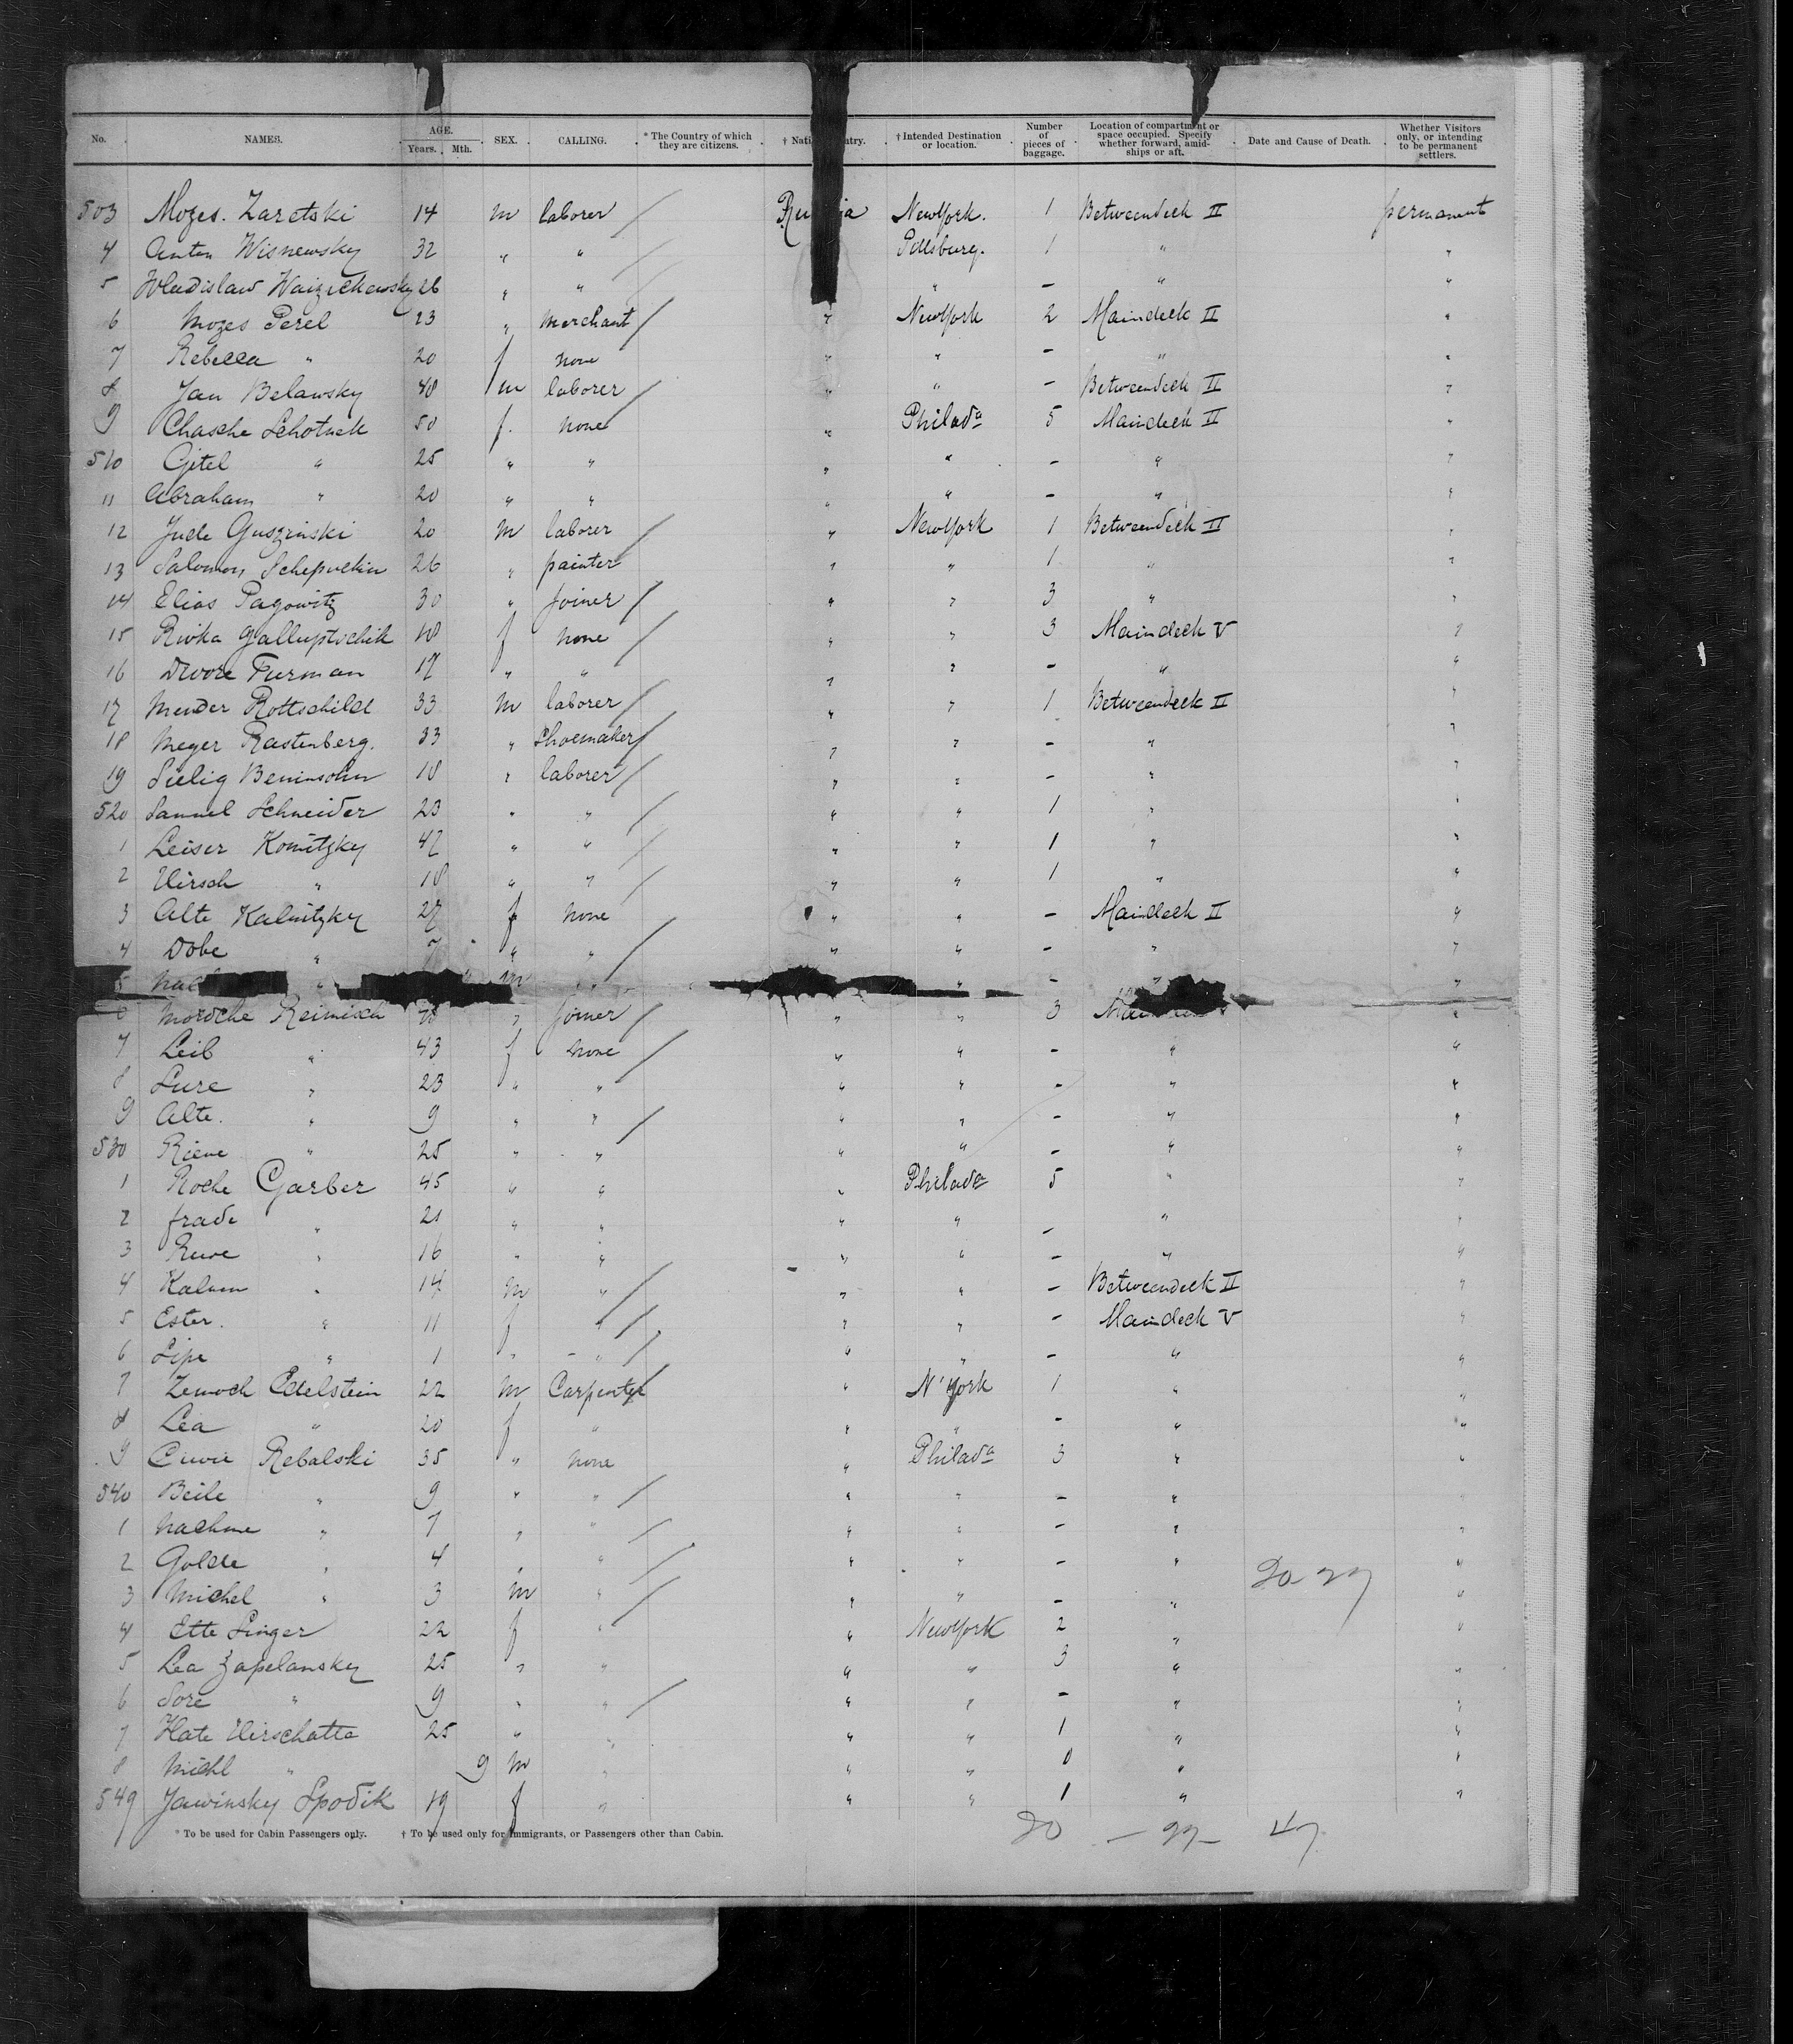 No. NAMES. AGE. Years. Mth. SEX. CALLING. * The Country of which they are citizens. † Nati ntry. † Intended Destination or location. Number of pieces of baggage. Location of compartment or space occupied. Specify whether forward, amidships or aft. Date and Cause of Death. Whether Visitors only, or intending to be permanent settlers.
503 Mozes. Zaretski 14 m laborer / Ru ia NewYork. 1 Betweendeck II permanent
4 Anton Wisnewsky 32 " " / Pittsburg. 1 " "
5 Wladislaw 26 " " / " - " "
6 Mozes Perel 23 " Merchant / " NewYork 2 Maindeck II "
7 Rebecca " 20 f none " " - " "
8 Jan Belawsky 48 m laborer / " " - Betweendeck II "
9 Chasche Schotnek 50 f. none / " Philada 5 Maindeck II "
510 Gitel " 25 " " " " - " "
11 Abraham " 20 " " " " - " "
12 Jude Guszinski 20 m laborer / " NewYork 1 Betweendeck II "
13 Salomon 26 " painter / " " 1 " "
14 Elias Pagowitz 30 " Joiner / " " 3 " "
15 Rivka Galluptschik 18 f none / " " 3 Maindeck V "
16 Dwore Furman 17 " " " " - " "
17 Mender Rottschild 33 m laborer / " " 1 Betweendeck II "
18 Meyer Rastenberg. 33 " Shoemaker / " " - " "
19 Selig Beninsohn 18 " laborer / " " - " "
520 Samuel Schneider 23 " " / " " 1 " "
1 Leiser Komitzky 47 " " / " " 1 " "
2 Hirsch " 18 " " / " " 1 " "
3 Alte Kalnitzky 27 f none " " - Maindeck II "
4 Dobe " 7 " " / " " - " "
5 " m " " - " "
Mordche Reimisch " Joiner / " " 3 "
7 Leib " 43 f none / " " - " "
8 Sure " 23 " " " " - " "
9 Alte. " 9 " " / " " - " "
530 Riewe " 25 " " " " - " "
1 Roche Garber 45 " " " Philada 5 " "
2 frade " 21 " " " " - " "
3 Ruwe " 16 " " " " - " "
4 Kalum " 14 m " / " " - Betweendeck II "
5 Ester. " 11 f " / " " - Maindeck V "
6 Lipe " 1 " - " / " " - " "
7 Zemach Edelstein 22 m Carpenter / " N'York 1 " "
8 Lea " 20 f " " " - " "
9 Rebalski 35 " none " Philada 3 " "
540 Beile " 9 " " / " " - " "
1 Nachme " 7 " " / " " - " "
2 Golde " 4 " " / " " - " "
3 Michel " 3 m " / " " - " "
4 Ette Singer 22 f " " NewYork 2 " "
5 Lea Zapelansky 25 " " " " 3 " "
6 Sore " 9 " " / " " - " "
7 Hate Hirschatte 25 " " " " 1 " "
8 Michl " 9 m " " " 0 " "
549 Jawinsky Spodik 19 f " " " 1 " "
* To be used for Cabin Passengers only. † To be used only for Immigrants, or Passengers other than Cabin.